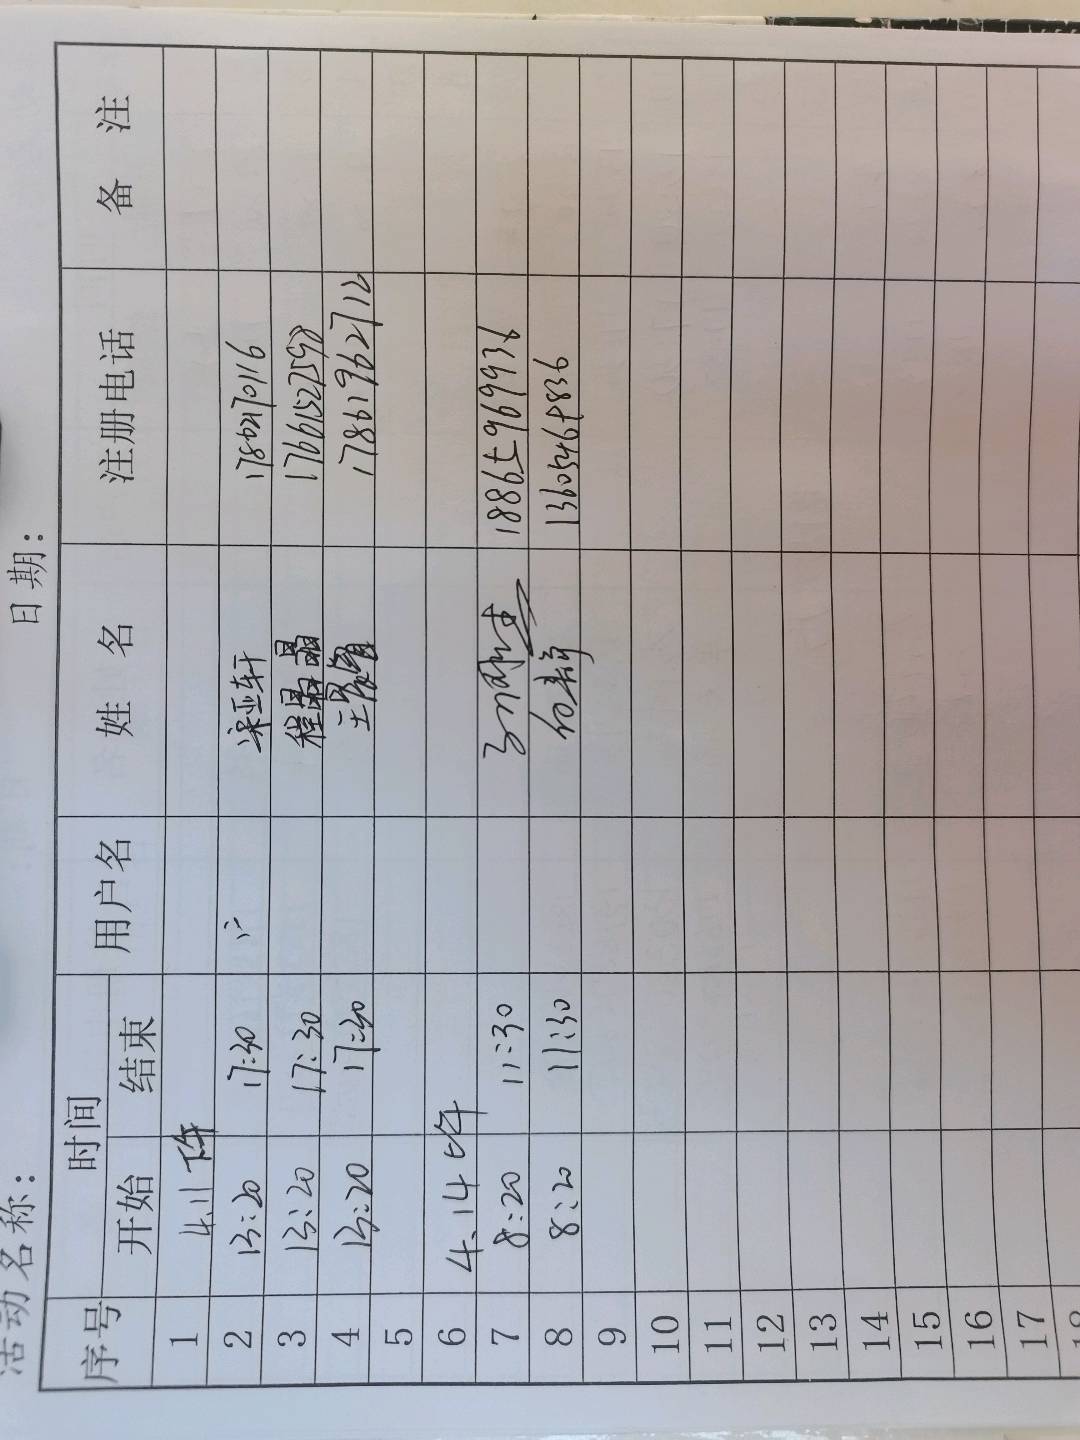 活动名称： 日期：
序号 时间 用户名 姓 名 注册电话 备 注
开始 结束
1 4.11 下午
2 13:20 17:30 梁亚轩
3 13:20 17:30 程晶晶 17661525758
4 13:20 17:30 17861962712
5
6 4.14 上午
7 8:20 11:30
8 8:20 11:30 13605468336
9
10
11
12
13
14
15
16
17
18